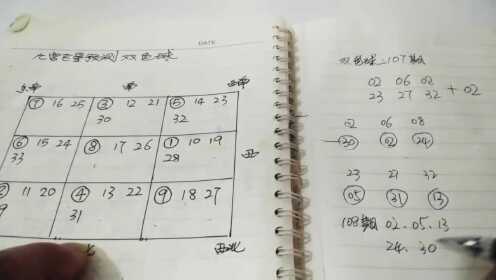 九宫飞星预测双色球
DATE
⑦ 16 25 ③ 12 21 ⑤ 14 23
30 32
⑥ 15 24 ⑧ 17 26 ① 10 19
33 28
11 20 ④ 13 22 ⑨ 18 27
31
西北
双色球:107期
02 06 02
23 27 32 + 02
02 06 08
㉚ 02 ㉔
23 21 32
05 ㉛ ⑬
108期 02、05、13
24、30